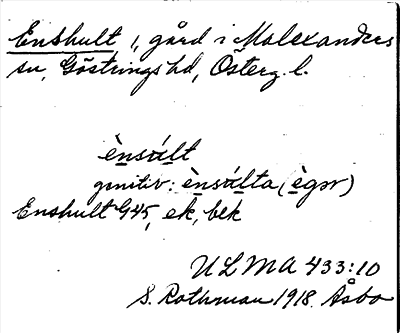 Enshult, 1, gård i Malexanders
sn, Göstrings hd, Österg. l.
ènsúlt
genitiv: ènsúlta (ègor)
Enshult G45, ek, bek
ULMA 433:10
S. Rothman 1918. Åsbo